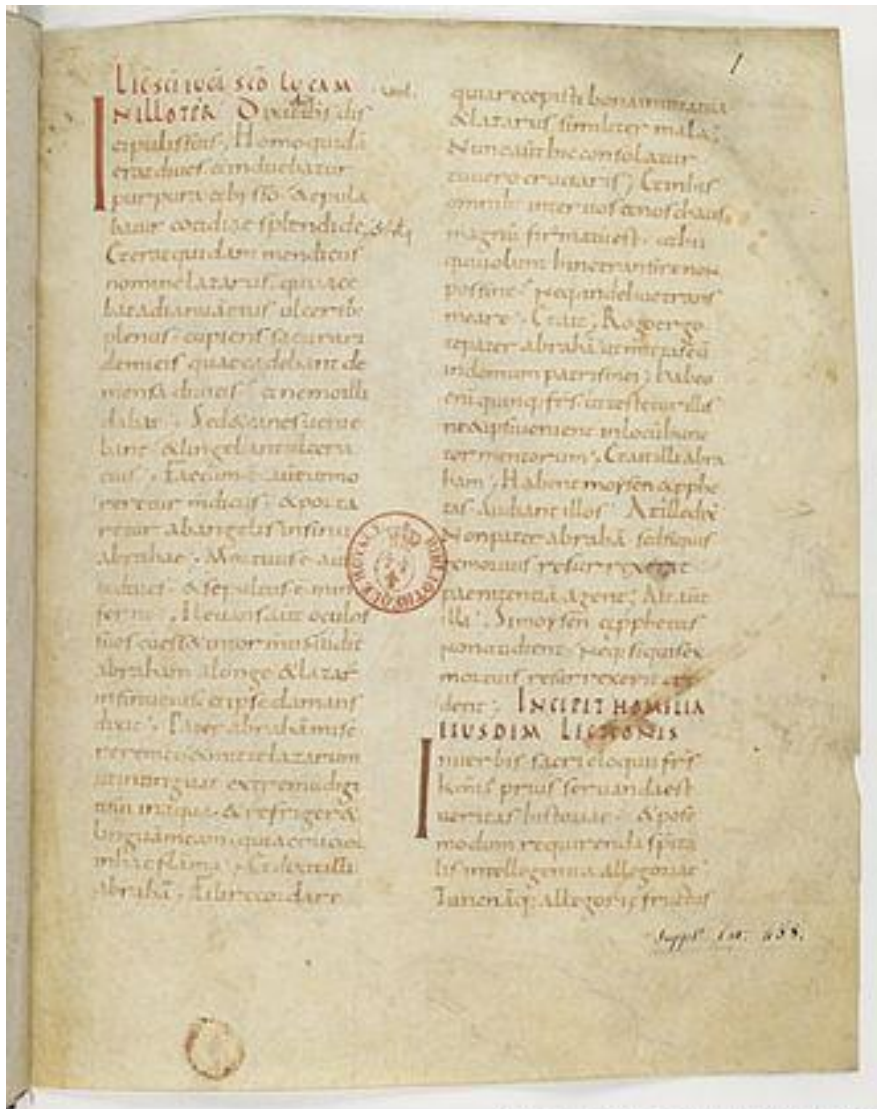 1
IN ILLO TEMPORE Dixit ihs dis
cipulis suis. Homo quidā
erat dives & induebatur
purpura & bisso & epula
batur cotidiae splendide
Et erat quidam mendicus
nomine lazarus qui iace
bat ad ianuā eius ulceribus
plenus cupiens saturari
de micis quae cadebant de
mensa divitis & nemo illi
dabat. Sed & canes venie
bant & lingebant ulcera
eius. Factum ē autem ut mo
reretur mendicus & porta
retur ab angelis in sinum
abrahae
dives & sepultus ē in in
ferno. Elevans aut oculos
suos
abraham a longe & lazarū
in sinu eius & ipse clamans
dixit. Pater abrahā mise
rere mei & mitte lazarum
ut intinguat extremū digi
ti sui in aqua & refriger&
linguā meam quia crucior
in hac flāma. Et dixit illi
abrahā. Fili recordare
quia recepisti bona in vita tua
& lazarus similiter mala
Nunc aūt hic consolatur
tu vero cruciaris; Et in his
omnib; inter vos & nos chaos
magnū firmatū est. ut hii
qui volunt hinc transire non
possint neq; inde huc trans
meare. Et ait. Rogo ergo
te pater abrahā ut mittas eū
in domum patris mei; habeo
eni quinq; frs ut testetur illis
ne & ipsi veniant in locū hunc
tormentorum. Et ait illi abra
ham. Habent moysen & pphe
tas. Audiant illos. At ille dix
Non pater abrahā sed si quis
ex mortuis resurrexerit
paenitentiā agent; Ait aūt
illi. Si moysen & pphetas
non audient neq; si quis ex
mortuis resurrexerit cre
dent. INCIPIT HOMILIA
EIUSDEM LECTIONIS
In verbis sacri eloquii frs
kmi prius servanda est
veritas historiae & post
modum requirenda spita
lis intellegentia allegoriae
Tunc nāq; allegoriae fructus
BIBLIOTHECAE REGIAE
Suppl. lat. 438.